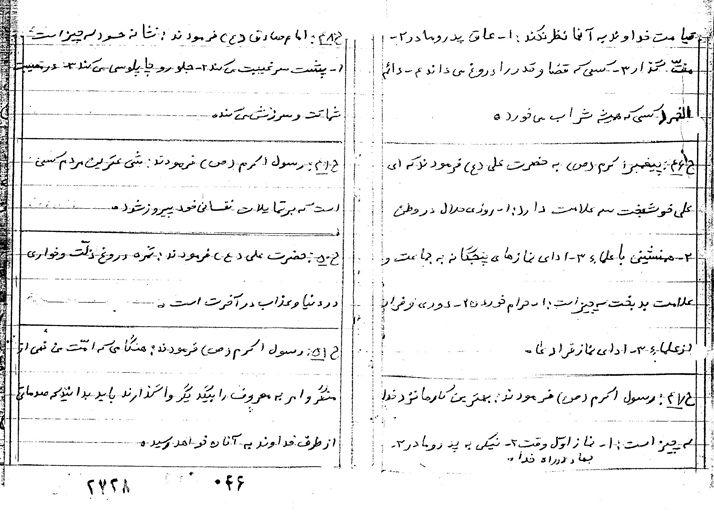 قیامت خداوند به آنها نظر نکند: ۱- عاق پدر و مادر ۲-
منّت گذار ۳- کسی که قضا و قدر را دروغ می داند ۴- دائم
الخمر (کسی که همیشه شراب می خورد)
ح۴۶: پیغمبر اکرم (ص) به حضرت علی (ع) فرمودند که ای
علی خوشبخت سه علامت دارد: ۱- روزی حلال در وطن
۲- همنشینی با علماء ۳- ادای نمازهای پنجگانه به جماعت و
علامت بدبخت سه چیز است: ۱- حرام خوردن ۲- دوری و فرار
از علماء ۳- ادای نماز فرادیٰ
ح۴۷: رسول اکرم (ص) فرمودند: بهترین کارها نزد خدا
سه چیز است: ۱- نماز اول وقت ۲- نیکی به پدر و مادر ۳-
جهاد در راه خدا.
ح۴۸: امام صادق (ع) فرمودند: نشانه حسود سه چیز است
۱- پشت سر غیبت می کند ۲- جلو رو چاپلوسی می کند ۳- در مصیبت
شماتت و سرزنش می کند.
ح۴۹: رسول اکرم (ص) فرمودند: شجاعترین مردم کسی
است که بر تمایلات نفسانی خود پیروز شود.
ح۵۰: حضرت علی (ع) فرمودند: ثمره دروغ ذلّت و خواری
در دنیا و عذاب در آخرت است.
ح۵۱: رسول اکرم (ص) فرمودند: هنگامی که امّت من نهی از
منکر و امر به معروف را بیکدیگر واگذارند باید بدانند که صدماتی
از طرف خداوند به آنان خواهد رسید.
۰۴۶
۲۷۲۸